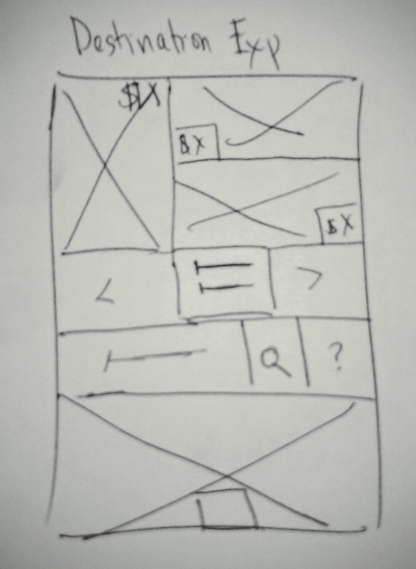 Destination Exp
$X
$X
$X
<
>
?